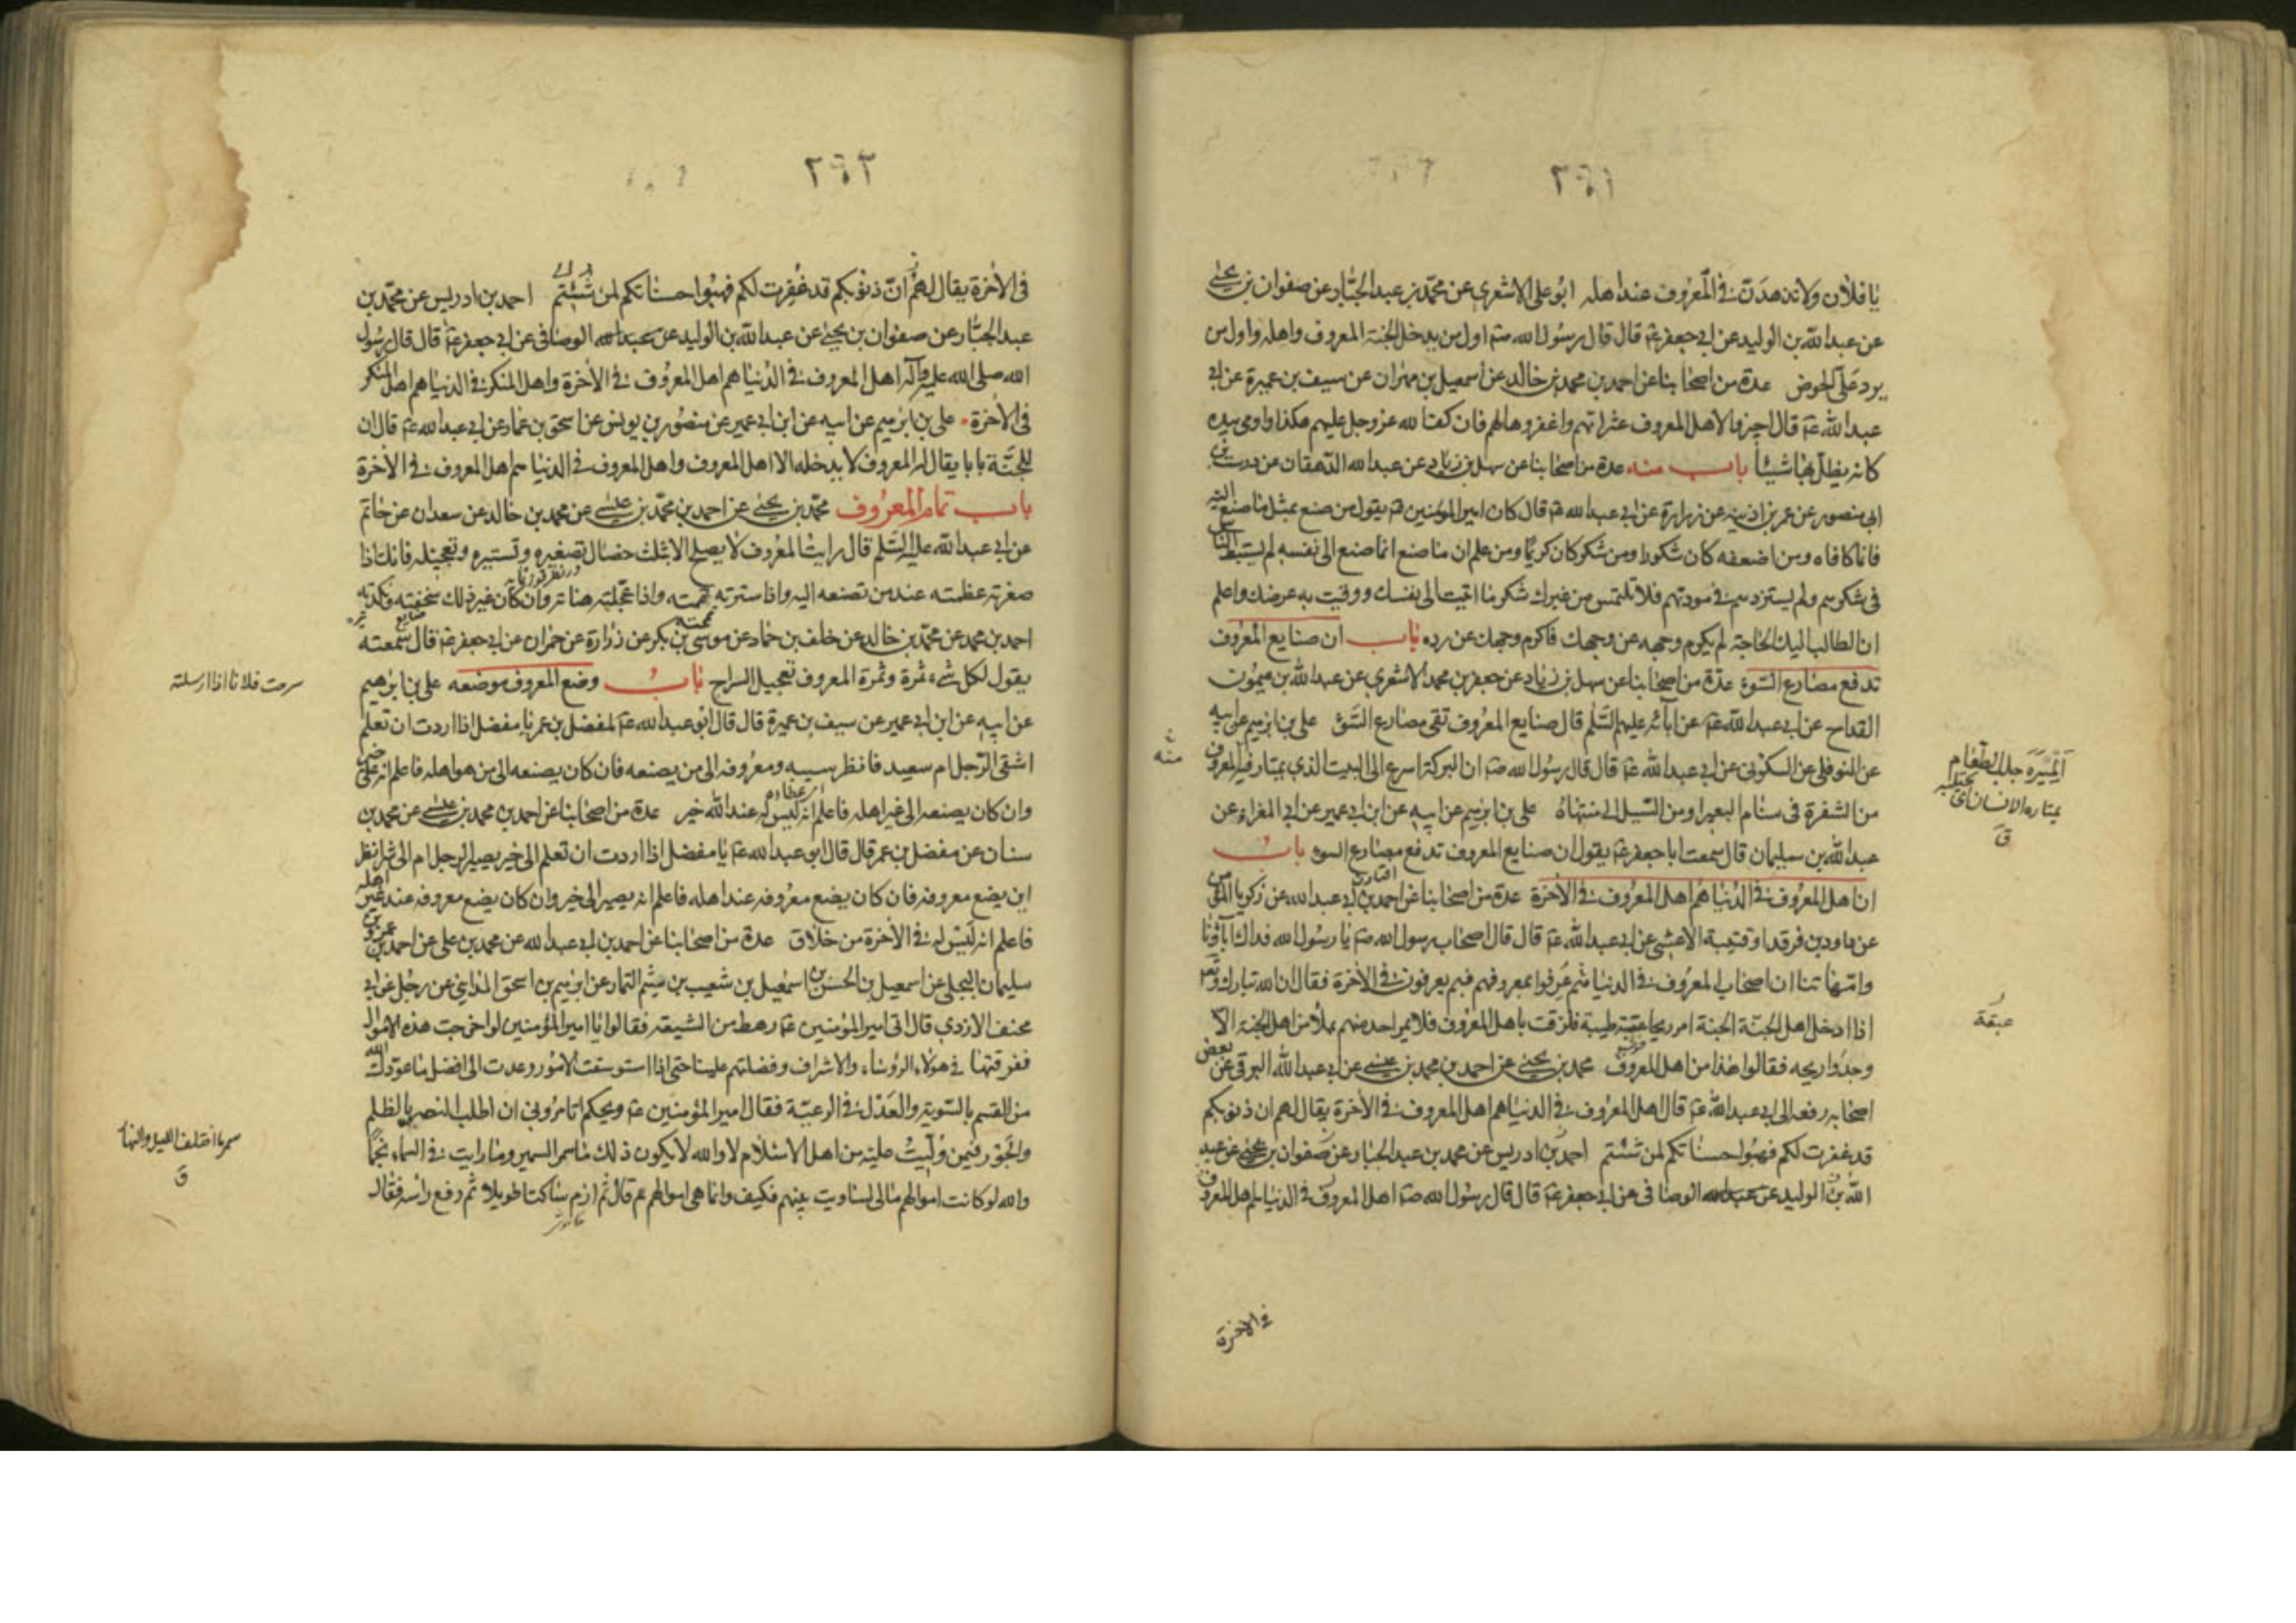 ٢٩١
يا فلان ولا تزهدن في المعروف عند اهله ابو علي الاشعري عن محمد بن عبد الجبار عن صفوان بن يحيى
عن عبد الله بن الوليد عن ابي جعفر ع قال قال رسول الله ص اول من يدخل الجنة المعروف واهله واول من
يرد علي الحوض عدة من اصحابنا عن احمد بن محمد بن خالد عن اسمعيل بن مهران عن سيف بن عميرة عن ابي
عبد الله ع قال اجيزوا لاهل المعروف عثراتهم واغفروها لهم فان كف الله عز وجل عليهم هكذا واومى بيده
كانه يظلل بها شيئا باب منه عدة من اصحابنا عن سهل بن زياد عن عبد الله الدهقان عن درست بن
ابي منصور عن عمر بن اذينه عن زرارة عن ابي عبد الله ع قال كان امير المؤمنين ع يقول من صنع بمثل ما صنع اليه
فانما كافاه ومن اضعفه كان شكورا ومن شكر كان كريما ومن علم ان ما صنع انما صنع الى نفسه لم يستبط الناس
في شكرهم ولم يستزدهم في مودتهم فلا تلتمس من غيرك شكر ما اتيت الى نفسك ووقيت به عرضك واعلم
ان الطالب اليك الحاجة لم يكرم وجهه عن وجهك فاكرم وجهك عن رده باب ان صنايع المعروف
تدفع مصارع السوء عدة من اصحابنا عن سهل بن زياد عن جعفر بن محمد الاشعري عن عبد الله بن ميمون
القداح عن ابي عبد الله ع عن ابائه عليهم السلم قال صنايع المعروف تقي مصارع السوء علي بن ابرهيم عن ابيه
عن النوفلي عن السكوني عن ابي عبد الله ع قال قال رسول الله ص ان البركة اسرع الى البيت الذي يمتار فيه المعروف
من الشفرة في سنام البعير او من السيل الى منتهاه علي بن ابرهيم عن ابيه عن ابن ابي عمير عن ابي المغراء عن
عبد الله بن سليمان قال سمعت ابا جعفر ع يقول ان صنايع المعروف تدفع مصارع السوء باب
ان اهل المعروف في الدنيا هم اهل المعروف في الآخرة عدة من اصحابنا عن احمد بن ابي عبد الله عن زكريا المؤمن
عن داود بن فرقد او قتيبة الاعشى عن ابي عبد الله ع قال قال اصحاب رسول الله ص يا رسول الله فداك آباؤنا
وامهاتنا ان اصحاب المعروف في الدنيا عرفوا بمعروفهم فبم يعرفون في الآخرة فقال ان الله تبارك وتعالى
اذا ادخل اهل الجنة الجنة امر ريحا عبقة طيبة فلزقت باهل المعروف فلا يمر احد منهم بملأ من اهل الجنة الا
وجدوا ريحه فقالوا هذا من اهل المعروف محمد بن يحيى عن احمد بن محمد بن عيسى عن ابي عبد الله البرقي عن بعض
اصحابه رفعه الى ابي عبد الله ع قال اهل المعروف في الدنيا هم اهل المعروف في الآخرة يقال لهم ان ذنوبكم
قد غفرت لكم فهبوا حسناتكم لمن شئتم احمد بن ادريس عن محمد بن عبد الجبار عن صفوان بن يحيى عن عبد
الله بن الوليد عن عبيد الله الوصافي عن ابي جعفر ع قال قال رسول الله ص اهل المعروف في الدنيا هم اهل المعروف
في الآخرة
الميرة جلب الطعام
عبقة
ق
منه
٢٩٢
في الآخرة يقال لهم ان ذنوبكم قد غفرت لكم فهبوا حسناتكم لمن شئتم احمد بن ادريس عن محمد بن
عبد الجبار عن صفوان بن يحيى عن عبد الله بن الوليد عن عبيد الله الوصافي عن ابي جعفر ع قال قال رسول
الله صلى الله عليه وآله اهل المعروف في الدنيا هم اهل المعروف في الآخرة واهل المنكر في الدنيا هم اهل المنكر
في الآخرة علي بن ابرهيم عن ابيه عن ابن ابي عمير عن منصور بن يونس عن اسحق بن عمار عن ابي عبد الله ع قال ان
للجنة بابا يقال له المعروف لا يدخله الا اهل المعروف واهل المعروف في الدنيا هم اهل المعروف في الآخرة
باب تمام المعروف محمد بن يحيى عن احمد بن محمد بن عيسى عن محمد بن خالد عن سعدان عن حاتم
عن ابي عبد الله عليه السلم قال رايت المعروف لا يصلح الا بثلث خصال تصغيره وتستيره وتعجيله فانك اذا
صغرته عظمته عند من تصنعه اليه واذا سترته تممته واذا عجلته هناته وان كان غير ذلك سخفته ونكدته
احمد بن محمد عن محمد بن خالد عن خلف بن حماد عن موسى بن بكر عن زرارة عن حمران عن ابي جعفر ع قال سمعته
يقول لكل شيء ثمرة وثمرة المعروف تعجيل السراح باب وضع المعروف موضعه علي بن ابرهيم
عن ابيه عن ابن ابي عمير عن سيف بن عميرة قال قال ابو عبد الله ع لمفضل بن عمر يا مفضل اذا اردت ان تعلم
اشقي الرجل ام سعيد فانظر سيبه ومعروفه الى من يصنعه فان كان يصنعه الى من هو اهله فاعلم انه على خير
وان كان يصنعه الى غير اهله فاعلم انه ليس له عند الله خير عدة من اصحابنا عن احمد بن محمد بن عيسى عن محمد بن
سنان عن مفضل بن عمر قال قال ابو عبد الله ع يا مفضل اذا اردت ان تعلم الى خير يصير الرجل ام الى شر انظر
اين يضع معروفه فان كان يضع معروفه عند اهله فاعلم انه يصير الى خير وان كان يضع معروفه عند غير اهله
فاعلم انه ليس له في الآخرة من خلاق عدة من اصحابنا عن احمد بن ابي عبد الله عن محمد بن علي عن احمد بن عمرو بن
سليمان البجلي عن اسمعيل بن الحسن بن اسمعيل بن شعيب بن ميثم التمار عن ابرهيم بن اسحق المدايني عن رجل عن ابي
مخنف الازدي قال اتى امير المؤمنين ع رهط من الشيعة فقالوا يا امير المؤمنين لو اخرجت هذه الاموال
ففرقتها في هؤلاء الرؤساء والاشراف وفضلتهم علينا حتى اذا استوسقت الامور عدت الى افضل ما عودك الله
من القسم بالسوية والعدل في الرعية فقال امير المؤمنين ع ويحكم اتامروني ان اطلب النصر بالظلم
والجور فيمن وليت عليه من اهل الاسلام لا والله لا يكون ذلك ما سمر السمير وما رايت في السماء نجما
والله لو كانت اموالهم مالي لساويت بينهم فكيف وانما هي اموالهم قال ثم ازم ساكتا طويلا ثم رفع راسه فقال
سرحت فلانا اذا ارسلته
سمر ما اختلف الليل والنهار
ق